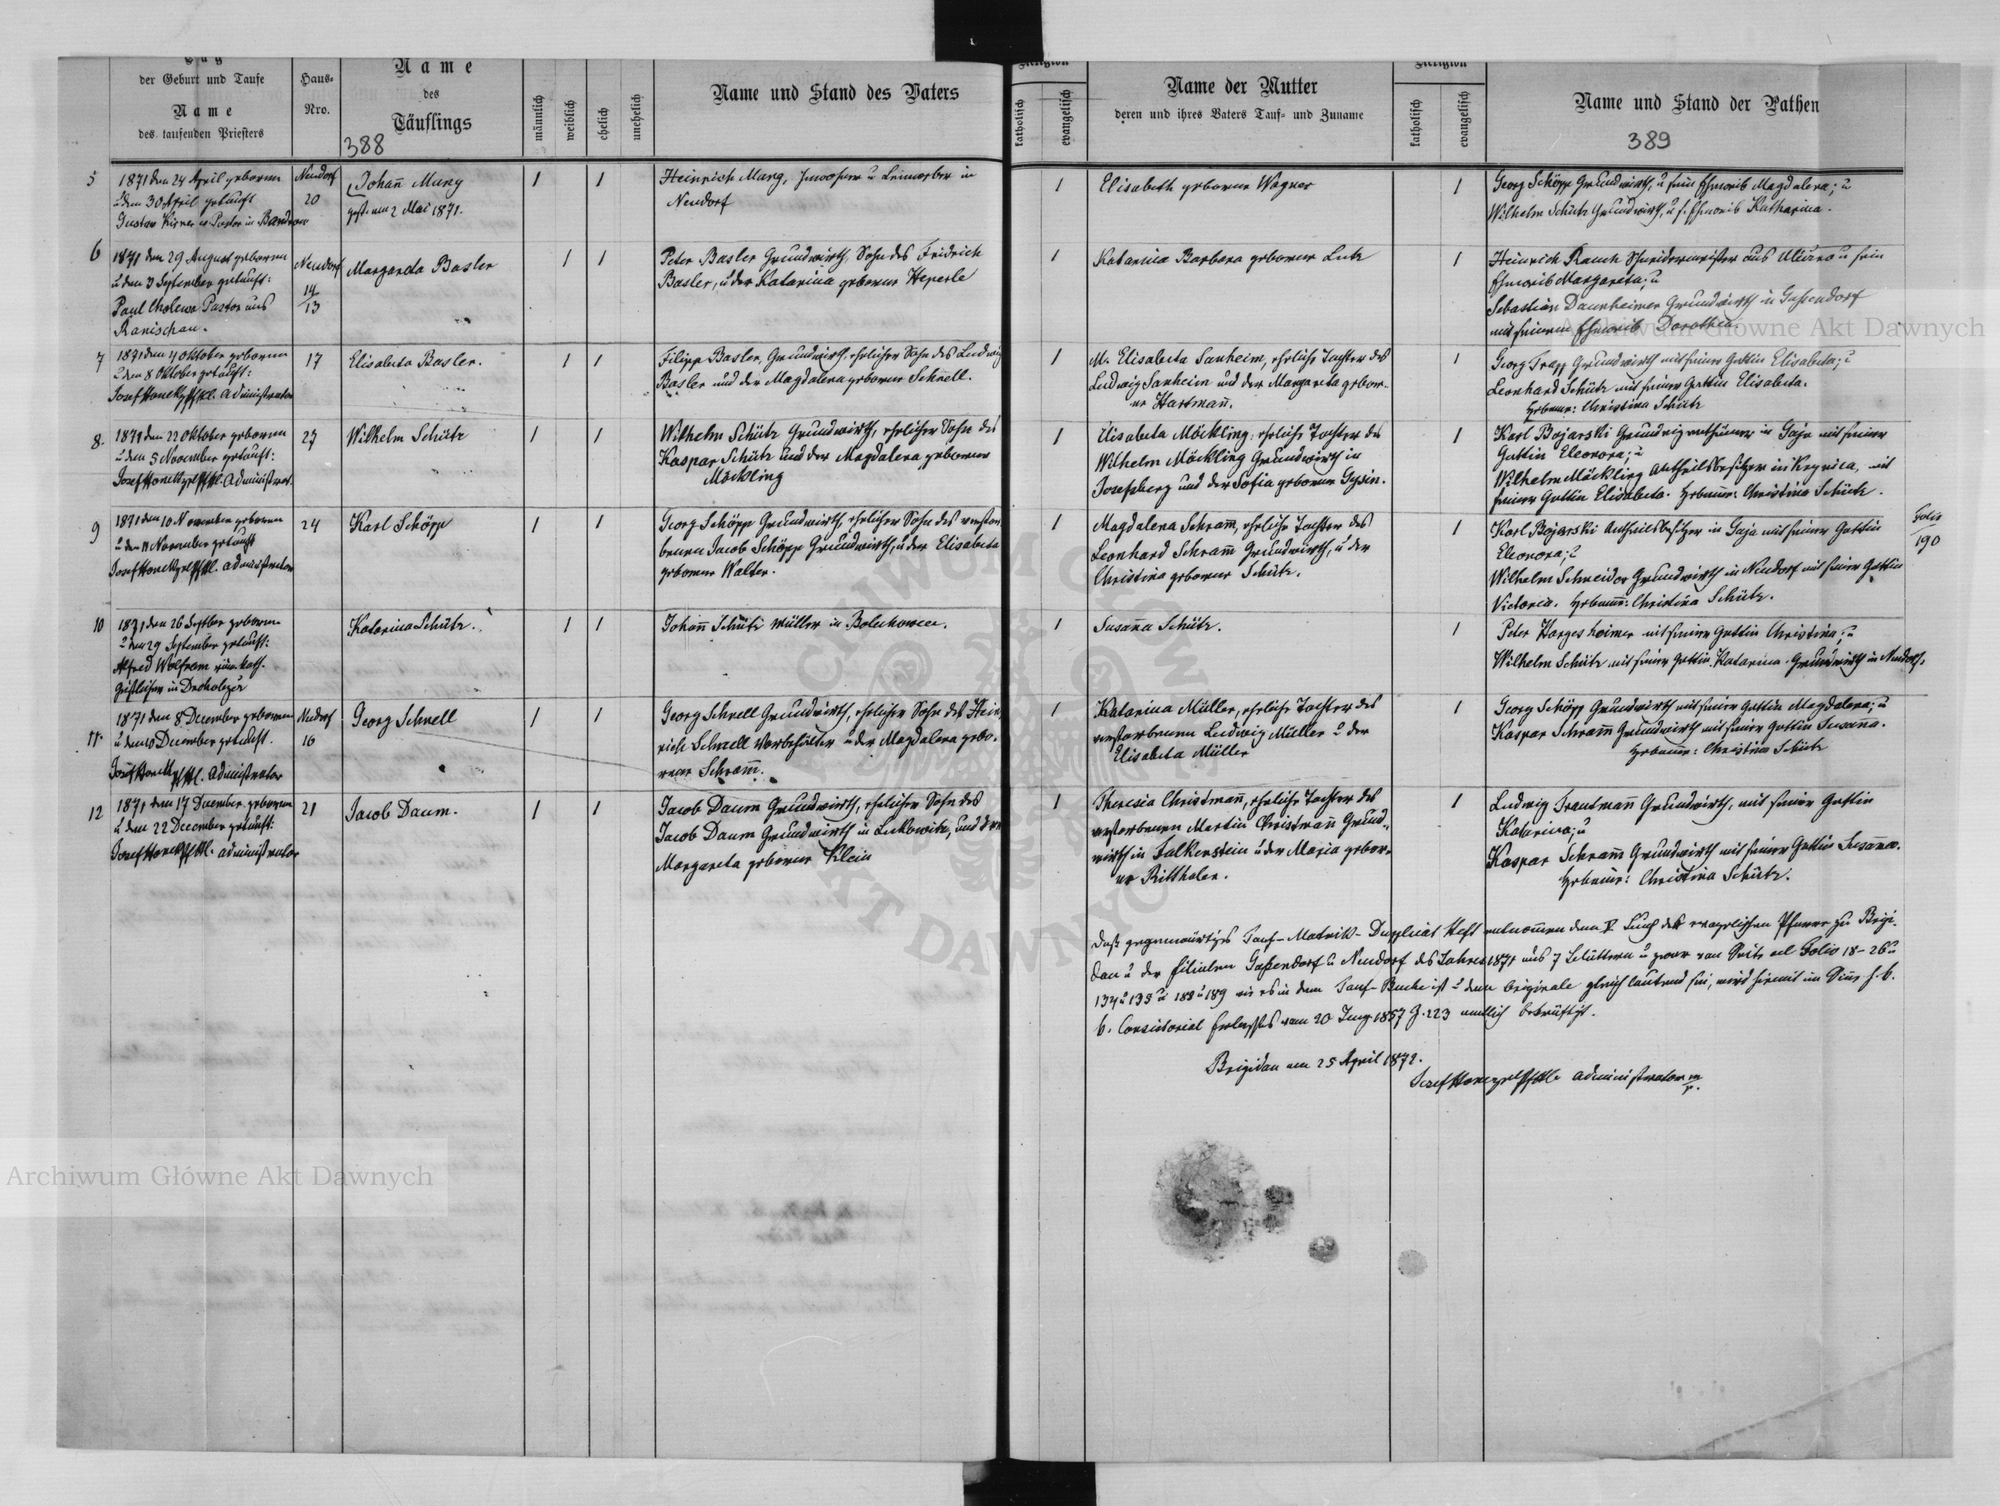 Tag
der Geburt und Taufe
Name
des taufenden Priesters
Haus-
Nro.
Name
des
Täuflings
388
männlich
weiblich
ehelich
unehelich
Name und Stand des Vaters
Religion
katholisch
evangelisch
Name der Mutter
deren und ihres Vaters Tauf- und Zuname
Religion
katholisch
evangelisch
Name und Stand der Pathen
389
5
1871 den 24 April geboren
u den 30 April getauft
Pastor in
Neudorf
20
Johan̄ Mang
gest. am 2 Mai 1871.
1
1
Heinrich Mang, in
Neudorf
1
Elisabeth geborene Wagner
1
Georg Schöpp Grundwirth, u sein Eheweib Magdalena; u
Wilhelm Schütz Grundwirth, u s. Eheweib Katharina.
6
1871 den 29 August geboren
u den 3 September getauft:
Paul Cholewa Pastor aus
Ranischau.
Neudorf
14
13
Margareta Basler
1
1
Peter Basler Grundwirth, Sohn des Fridrich
Basler, u der Katarina geborene Heperle
1
Katarina Barbara geborene Lutz
1
Heinrich Rauch Schneidermeister aus u sein
Eheweib Margareta; u
Sebastian Daumheimer Grundwirth in Gassendorf
mit seinem Eheweib Dorothea.
7
1871 den 4 Oktober geboren
u den 8 Oktober getauft:
Josef Administrator
17
Elisabeta Basler.
1
1
Filipp Basler, Grundwirth, ehelicher Sohn des Ludwig
Basler und der Magdalena geborene Schnell.
1
M. Elisabeta Sanheim, eheliche Tochter des
Ludwig Sanheim und der Margareta gebore-
ne Hartman̄.
1
Georg Trapp Grundwirth mit seiner Gattin Elisabeta; u
Leonhard Schütz mit seiner Gattin Elisabeta.
Hebamme: Christina Schütz
8.
1871 den 22 Oktober geboren
u den 5 November getauft:
Josef Administrat.
27
Wilhelm Schütz
1
1
Wilhelm Schütz Grundwirth, ehelicher Sohn des
Kaspar Schütz und der Magdalena geborene
Möckling
1
Elisabeta Möckling, eheliche Tochter des
Wilhelm Möckling Grundwirth in
Josefsberg und der Sofia geborene Gysin.
1
Karl Bojarski in Gaja mit seiner
Gattin Eleonora; u
Wilhelm Möckling Antheilsbesitzer in Krynica, mit
seiner Gattin Elisabeta. Hebamme: Christina Schütz.
9
1871 den 10 November geboren
u den 11 November getauft
Josef Administrator
24
Karl Schöpp
1
1
Georg Schöpp Grundwirth, ehelicher Sohn des verstor-
benen Jacob Schöpp Grundwirth, u der Elisabeta
geborene Walter.
1
Magdalena Schram̄, eheliche Tochter des
Leonhard Schram̄ Grundwirth, u der
Christina geborene Schütz.
1
Karl Bojarski Antheilsbesitzer in Gaja mit seiner Gattin
Eleonora; u
Wilhelm Schneider Grundwirth in Neudorf mit seiner Gattin
Victoria. Hebamme: Christina Schütz.
Folio
190
10
1871 den 26 September geboren
u den 29 September getauft:
Alfred Wolfram röm. kath.
Geistlicher in Drohobycz
Katarina Schütz.
1
1
Johan̄ Schütz Müller in Bolechowce.
Susan̄a Schütz.
1
Peter Hargesheimer mit seiner Gattin Christina; u
Wilhelm Schütz mit seiner Gattin Katarina. Grundwirth in Neudorf.
11.
1871 den 8 December geboren
u den 10 December getauft.
Josef Administrator
Neudorf
16
Georg Schnell
1
1
Georg Schnell Grundwirth, ehelicher Sohn des Hein-
rich Schnell Vorbehälter u der Magdalena gebo-
rene Schram̄.
1
Katarina Müller, eheliche Tochter des
verstorbenen Ludwig Müller u der
Elisabeta Müller
1
Georg Schöpp Grundwirth mit seiner Gattin Magdalena; u
Kaspar Schram̄ Grundwirth mit seiner Gattin Susan̄a.
Hebamme: Christina Schütz
12
1871 den 17 December geboren
u den 22 December getauft:
Josef Administrator
21
Jacob Daum.
1
1
Jacob Daum Grundwirth, ehelicher Sohn des
Jacob Daum Grundwirth in Lukowitz, und der
Margareta geborene Klein
1
Theresia Christman̄, eheliche Tochter des
verstorbenen Martin Christman̄ Grund-
wirth in Falkenstein u der Maria gebor-
ne Ritthaler.
1
Ludwig Trautman̄ Grundwirth, mit seiner Gattin
Katarina; u
Kaspar Schram̄ Grundwirth mit seiner Gattin Susan̄a.
Hebamme: Christina Schütz.
Daß gegenwärtiges Tauf-Matrik-Duplicat Heft entnom̄en dem V Buch des evangelischen Pfarre zu Brigi-
dau u der Filialen Gaßendorf u Neudorf des Jahres 1871 aus 7 Blättern u zwar von Seite ad Folio 18-26 u
134 u 135 u 188 u 189 wie es in dem Tauf-Buche ist u dem Originale gleich lautend sei, wird hiemit im Sinne h.
Consistorial Erlasses vom 20 1857 Z. 223 amtlich bekräftigt.
Brigidau am 25 April 1872.
Josef Administrator
ARCHIWUM GŁÓWNE AKT DAWNYCH
Archiwum Główne Akt Dawnych
Archiwum Główne Akt Dawnych